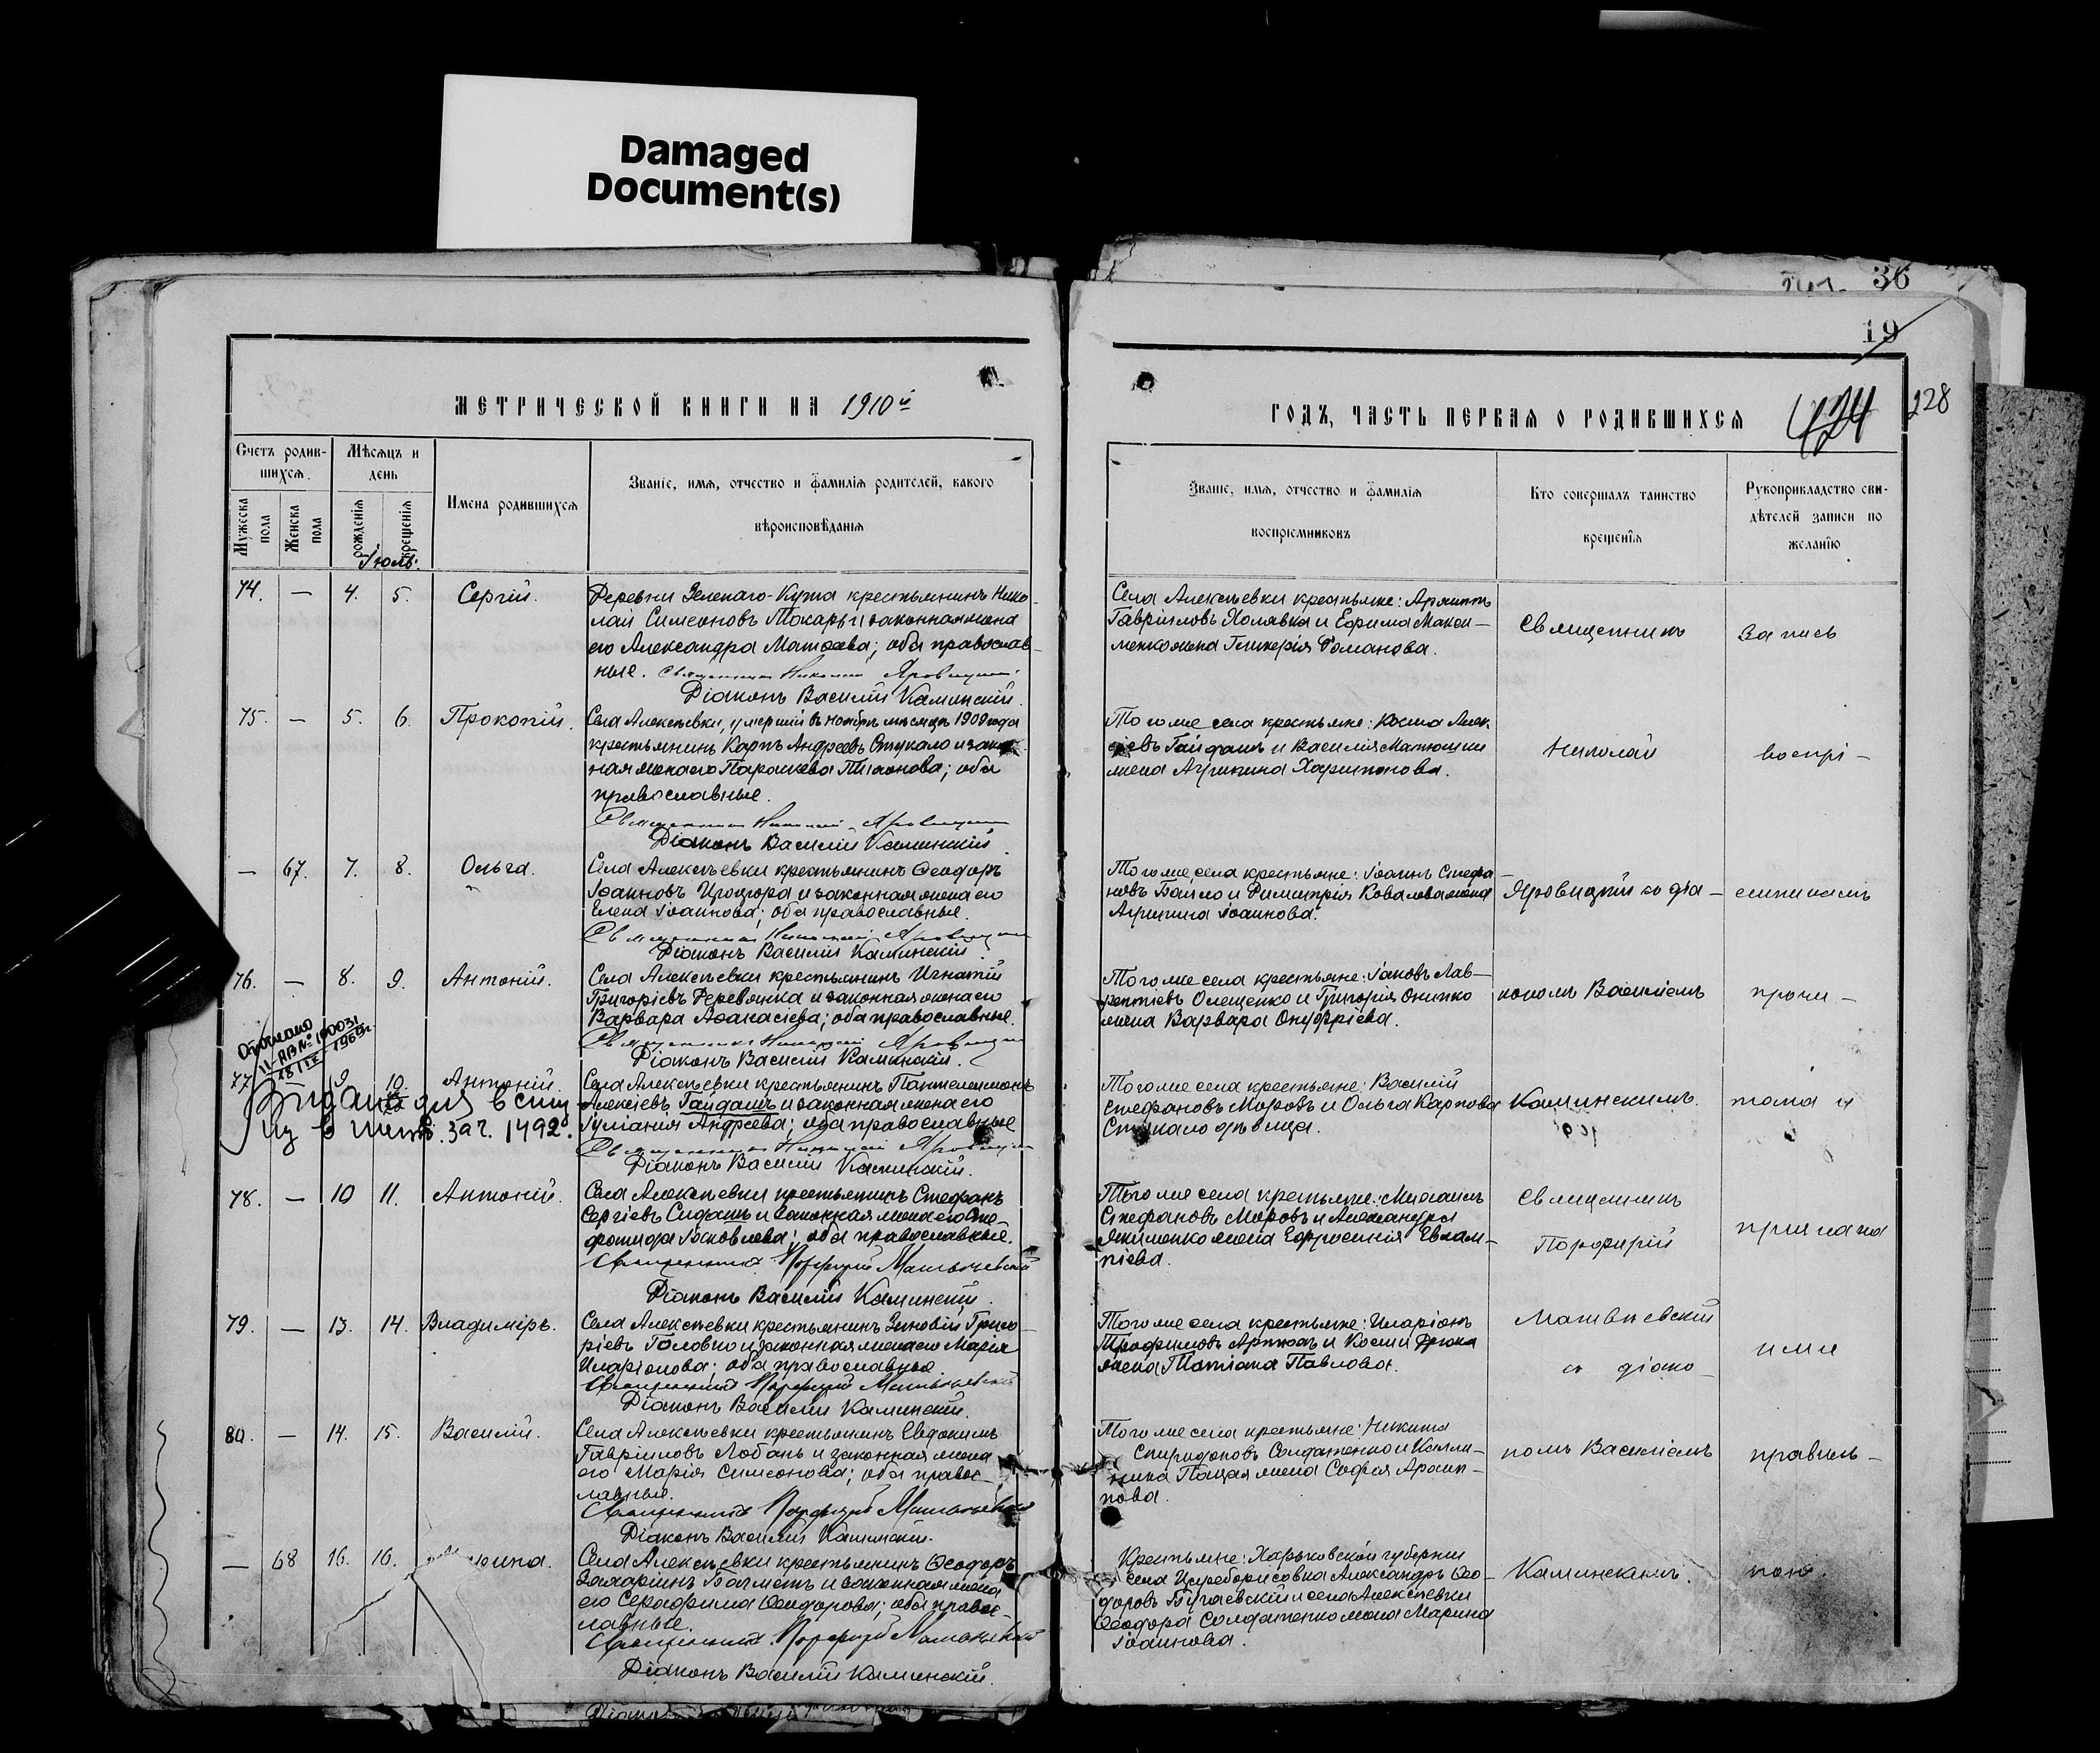 Damaged
Document(s)
36
19
МЕТРИЧЕСКОЙ КНИГИ НА 1910й
Счетъ родив-
шихся.
Мѣсяцъ и
день
Мужеска
пола
Женска
пола
рожденія
крещенія
Имена родившихся
Званіе, имя, отчество и фамилія родителей, какого
вѣроисповѣданія
Іюль.
74. — 4. 5. Сергій.
Деревни Зеленаго-Кута крестьянинъ Нико-
лай Симеоновъ Токарь и законная жена
его Александра Матѳеева; оба православ-
ные. Священникъ Николай Яровицкій
Діаконъ Василій Каминскій.
75. — 5. 6. Прокопій.
Села Алексѣевки, умершій въ ноябрѣ мѣсяцѣ 1909 года
крестьянинъ Карпъ Андреевъ Стукало и закон
ная жена его Параскева Тихонова; оба
православные.
Священникъ Николай Яровицкій
Діаконъ Василій Каминскій.
— 67. 7. 8. Ольга.
Села Алексѣевки крестьянинъ Ѳеодоръ
Іоанновъ и законная жена его
Елена Іоаннова; оба православные.
Священникъ Николай Яровицкій
Діаконъ Василій Каминскій.
76. — 8. 9. Антоній.
Села Алексѣевки крестьянинъ Игнатій
Григоріевъ Деревянка и законная жена его
Варвара Аѳанасіева; оба православные.
Священникъ Николай Яровицкій
Діаконъ Василій Каминскій.
1969г.
77 9 10. Антоній.
Села Алексѣевки крестьянинъ Пантелеимонъ
Алексіевъ Гайдашъ и законная жена его
Іуліанія Андреева; оба православные
Священникъ Николай Яровицкій
Діаконъ Василій Каминскій.
1492.
78. — 10 11. Антоній.
Села Алексѣевки крестьянинъ Стефанъ
Сергіевъ Сидашъ и законная жена его
Іаковлева; оба православные.
Священникъ Порфирій Матвѣевскій
Діаконъ Василій Каминскій.
79. — 13. 14. Владиміръ.
Села Алексѣевки крестьянинъ Зиновій Григо-
ріевъ Головко и законная жена его Марія
Иларіонова; оба православные
Священникъ Порфирій Матвѣевскій
Діаконъ Василій Каминскій.
80. — 14. 15. Василій.
Села Алексѣевки крестьянинъ Евдокимъ
Гавріиловъ Лобань и законная жена
его Марія Симеонова; оба правос-
лавные.
Священникъ Порфирій Матвѣевскій
Діаконъ Василій Каминскій.
— 68 16. 16.
Села Алексѣевки крестьянинъ Ѳеодоръ
Захаріинъ и законная жена
его Серафима Ѳеодорова; оба правос-
лавные.
Священникъ Порфирій Матвѣевскій
Діаконъ Василій Каминскій.
ГОДЪ, ЧАСТЬ ПЕРВАЯ О РОДИВШИХСЯ
424
228
Званіе, имя, отчество и фамилія
воспріемниковъ
Кто совершалъ таинство
крещенія
Рукоприкладство сви-
дѣтелей записи по
желанію
Села Алексѣевки крестьяне: Архиппъ
Гавріиловъ Халявка и Ефрима Макси-
менко жена Гликерія Романова.
Того же села крестьяне: Косма Алек
сіевъ Гайдашъ и Василія Матюшки
жена Агрипина Харитонова.
Того же села крестьяне: Іоаннъ Стефа-
новъ и Димитрія Ковалева жена
Агрипина Іоаннова.
Того же села крестьяне: Іаковъ Лав-
рентіевъ Олещенко и Григорія Онипко
жена Варвара Онуфріева.
Того же села крестьяне: Василій
Стефановъ Моровъ и Ольга Карпова
Стукало дѣвица.
Того же села крестьяне: Михаилъ
Стефановъ Моровъ и Александра
Якименко жена Ефросинія Евлам-
піева.
Того же села крестьяне: Иларіонъ
Трофимовъ и Космы
жена Татіана Павлова.
Того же села крестьяне: Никита
Спиридоновъ Солдатенко и
жена Софія Архип-
пова.
Крестьяне: Харьковской губерніи
села Цареборисовка Александръ Ѳео-
доровъ Бугаевскій и села Алексѣевки
Ѳеодора Солдатенко жена Марина
Іоаннова.
Священникъ
Николай
Яровицкій со діа-
кономъ Василіемъ
Каминскимъ.
Священникъ
Порфирій
Матвѣевскій
со діако-
номъ Василіемъ
Каминскимъ.
Запись
воспрі-
емникамъ
прочи-
тана и
признана
ими
правиль-
ною.